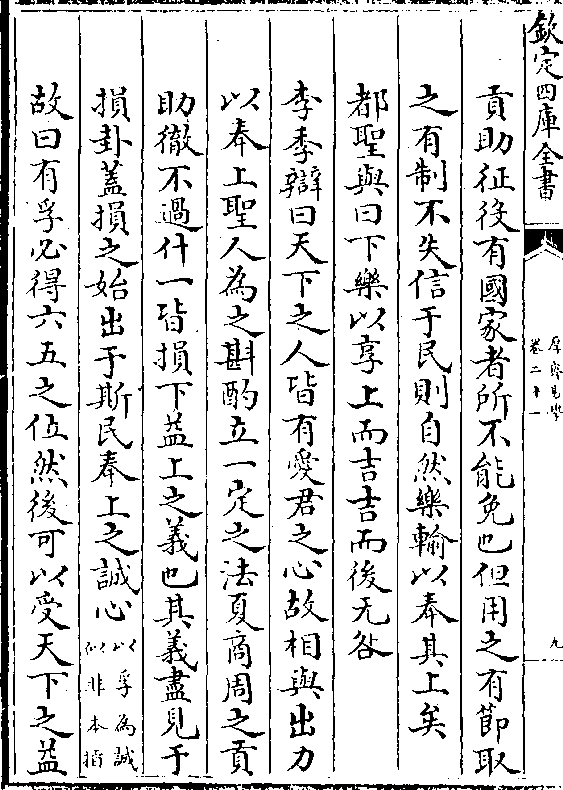 欽定四庫全書
厚齋易學
卷二十一
九
貢助征役有國家者所不能免也但用之有節取
之有制不失信于民則自然樂輸以奉其上矣
都聖與曰下樂以享上而吉吉而後无咎
李季辯曰天下之人皆有愛君之心故相與出力
以奉上聖人為之斟酌立一定之法夏商周之貢
助徹不過什一皆損下益上之義也其義盡見于
損卦蓋損之始出于斯民奉上之誠心以孚為誠
似非本指
故曰有孚必得六五之位然後可以受天下之益